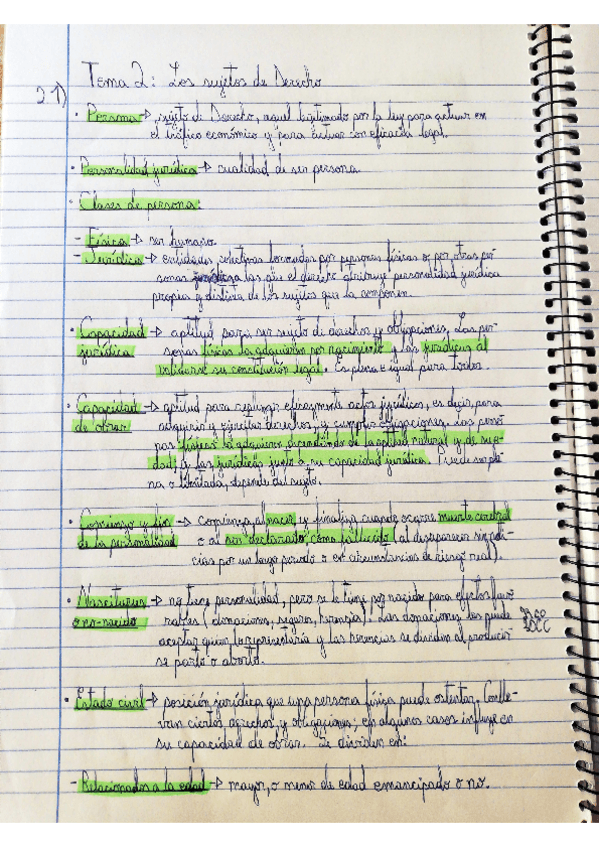 Tema 2: Los sujetos de Derecho
2.1)
· Persona → sujeto de Derecho, aquel legitimado por la ley para actuar en
el tráfico económico y para actuar con eficacia legal.
· Personalidad jurídica → cualidad de ser persona
· Clases de persona:
- Física → ser humano
- Jurídica → entidades colectivas formadas por personas físicas o por otras per-
sonas a las que el derecho atribuye personalidad jurídica
propia y distinta de los sujetos que la componen.
· Capacidad → aptitud para ser sujeto de derechos y obligaciones. Las per-
jurídica sonas físicas la adquieren por nacimiento y las jurídicas al
validarse su constitución legal. Es plena e igual para todos.
· Capacidad → aptitud para realizar eficazmente actos jurídicos, es decir, para
de obrar adquirir y ejercitar derechos, y cumplir obligaciones. Las perso-
nas físicas la adquieren dependiendo de la aptitud natural y de su e-
dad, y las jurídicas junto a su capacidad jurídica. Puede ser ple-
na o limitada, depende del sujeto.
· Comienzo y fin → comienza al nacer y finaliza cuando ocurre muerte cerebral
de la personalidad o al ser declarado como fallecido (al desaparecer sin noti-
cias por un largo periodo o en circunstancias de riesgo real).
· Nasciturus → no tiene personalidad, pero se le tiene por nacido para efectos favo-
o no-nacido rables (donaciones, seguros, herencia). Las donaciones las puede
aceptar quien los representaría y las herencias se dividen al producir-
se parto o aborto.
· Estado civil → posición jurídica que una persona física puede ostentar. Conlle-
van ciertos derechos y obligaciones; en algunos casos influye en
su capacidad de obrar. Se dividen en:
- Relacionados a la edad → mayor, o menor de edad emancipado o no.